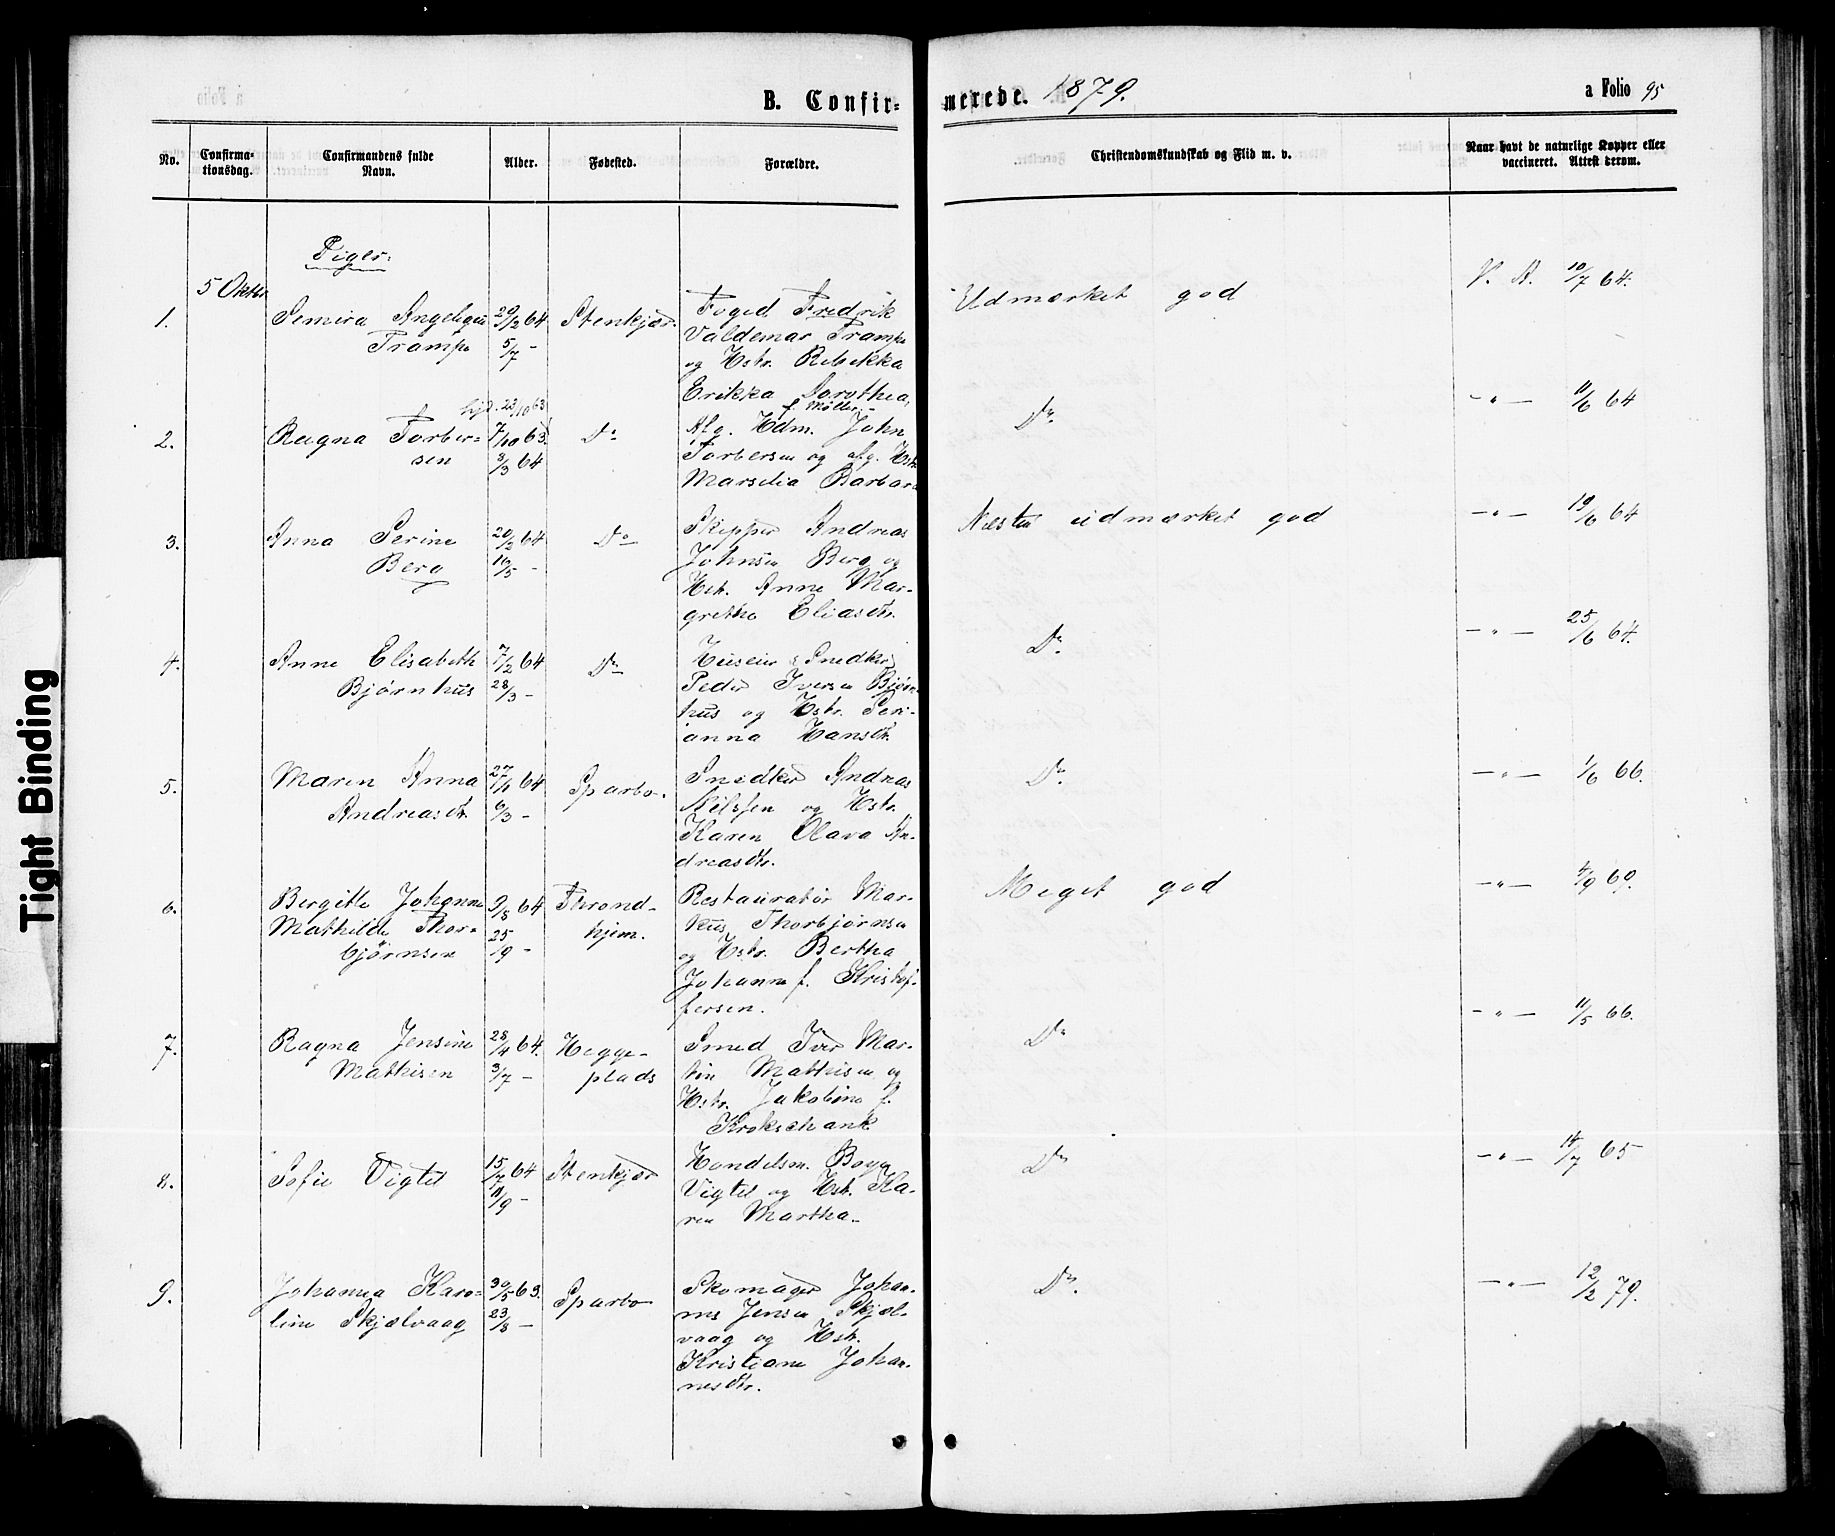 B. Confirmerede. 1879.
a Folio 95
No.
Confirma-
tionsdag.
Confirmandens fulde
Navn.
Alder.
Fødested.
Forældre.
Christendomskundskab og Flid m. v.
Naar havt de naturlige Kopper eller
vaccineret. Attest derom.
Piger:
5 Oktbr
1.
Semira Angeliqu
Trampe
29/2 64
5/7 -
Stenkjær.
Foged Fredrik
Valdemar Trampe
og Hstr. Rebekka
Erikka Dorothea,
f. Møller
Udmærket god
V. A. 10/7 64.
2.
Ragna Torber-
sen
hjd. 23/10 63
7/10 63.
3/3 64
Do
Afg. Hdm. John
Torbersen og afg. Hstr
Marselia Barbara
Do.
-"- 11/6 64
3.
Anna Serine
Berg
20/2 64
16/5 -
Do
Skipper Andreas
Johnsen Berg og
Hstr. Anne Mar-
grethe Eliasdtr.
Næsten udmærket god
-"- 19/6 64
4.
Anne Elisabeth
Bjørnhus
7/2 64
28/3 -
Do
Huseier & Snedker
Peder Iversen Bjørn
hus og Hstr. Seri-
anna Hansdtr.
Do.
-"- 25/6 64.
5.
Maren Anna
Andreasdtr.
27/1 64
6/3 -
Sparbo.
Snedker Andreas
Nilssen og Hstr.
Karen Olava An-
dreasdtr.
Do.
-"- 1/6 66.
6.
Bergitte Johanne
Mathilde Thor-
bjørnsen
9/8 64
25/9 -
Thrond-
hjem.
Restauratør Mar-
kus Thorbjørnsen
og Hstr. Bertha
Johanne f. Kristof-
fersen.
Meget god
-"- 4/9 69.
7.
Ragna Jensine
Mathisen
28/4 64.
3/7 -
Hegge-
plads
Smed Iver Mar-
tin Mathisen og
Hstr. Jakobine f.
Krokschank
Do
-"- 11/5 66.
8.
Sofie Vigtel
15/7 64
11/9 -
Stenkjær
Handelsm. Boye
Vigtel og Hstr. Ka-
ren Martha.
Do
-"- 14/7 65
9.
Johanna Karo-
line Skjælvaag
30/5 63.
23/8 -
Sparbo
Skomager Johan-
nes Jensen Skjæl-
vaag og Hstr.
Kristiane Johan-
nesdtr.
Do.
-"- 12/2 79.
Tight Binding